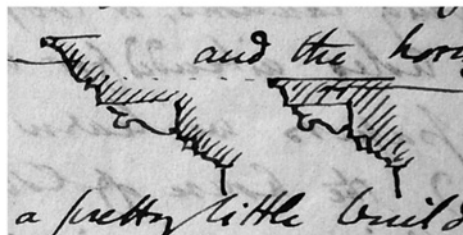 and the hori
a pretty little build